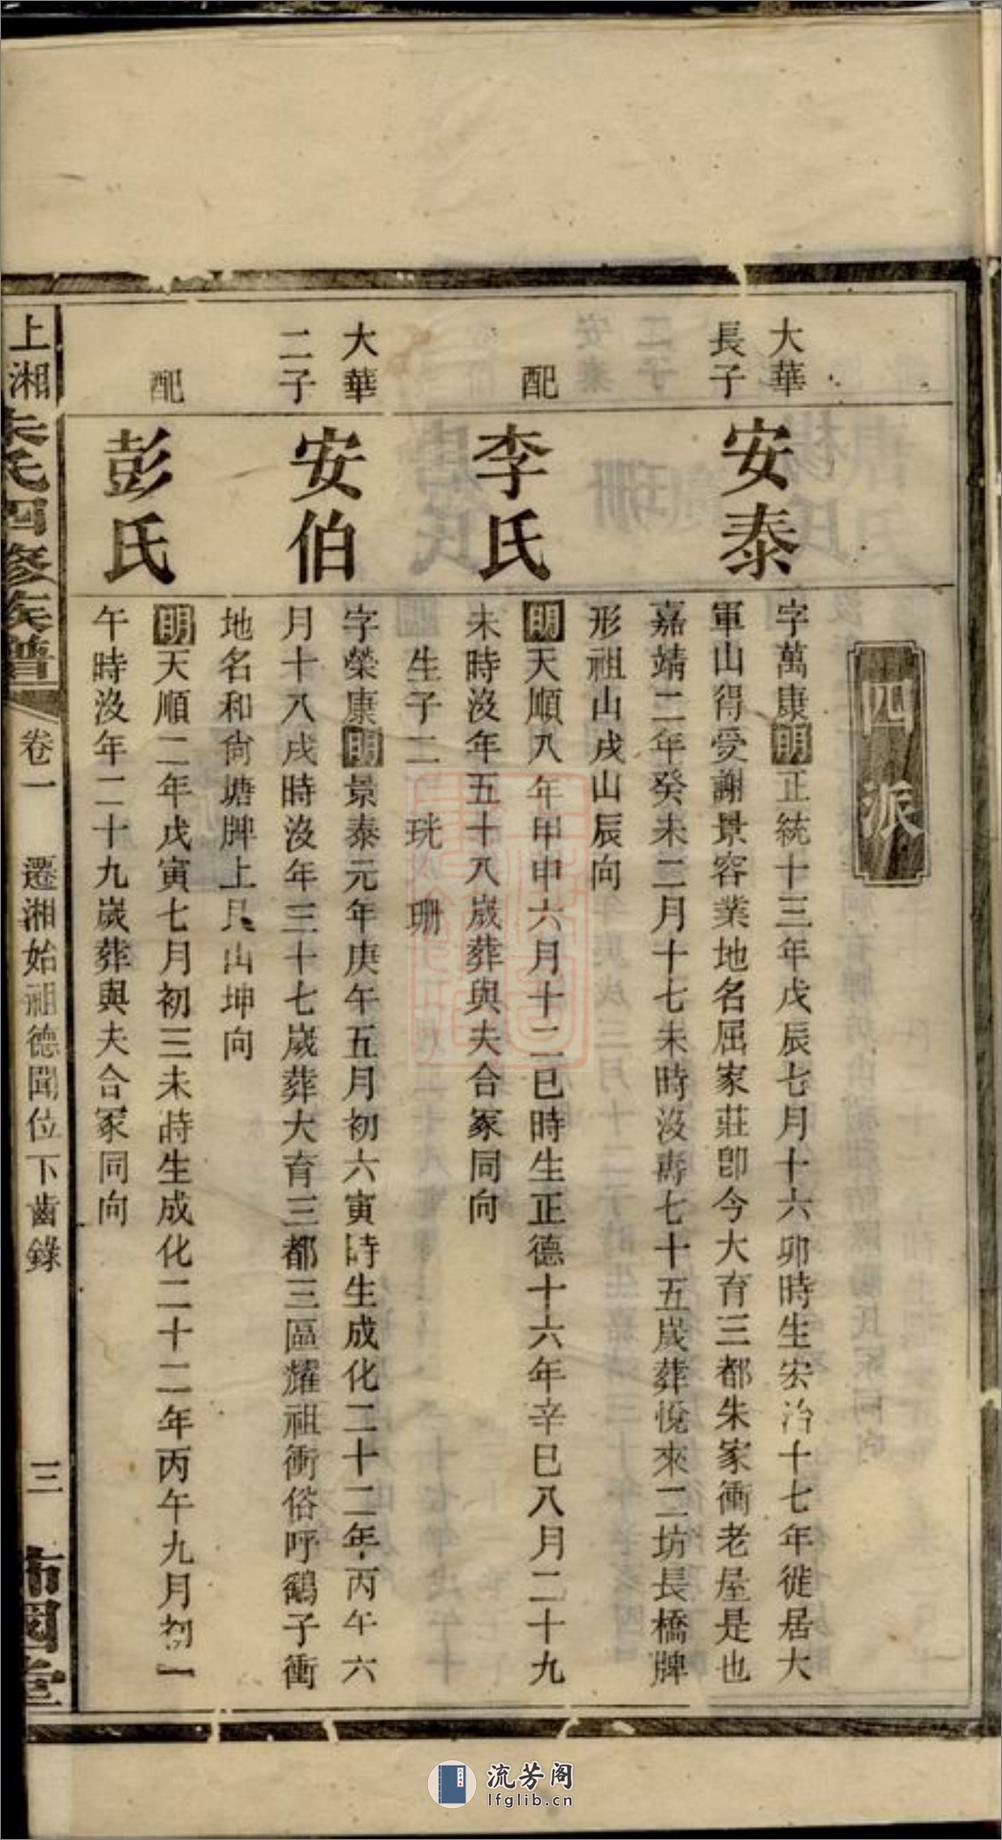 四派
大華
長子
安泰
字萬康明正統十三年戊辰七月十六卯時生宏治十七年徙居大
軍山得受謝景容業地名屈家莊卽今大育三都朱家衝老屋是也
嘉靖二年癸未二月十七未時沒壽七十五歲葬悅來二坊長橋牌
形祖山戌山辰向
配
李氏
明天順八年甲申六月十二巳時生正德十六年辛巳八月二十九
未時沒年五十八歲葬與夫合冢同向
生子二 珖 珊
大華
二子
安伯
字榮康明景泰元年庚午五月初六寅時生成化二十二年丙午六
月十八戌時沒年三十七歲葬大育三都三區耀祖衝俗呼鶴子衝
地名和尙塘牌上艮山坤向
配
彭氏
明天順二年戊寅七月初三未時生成化二十二年丙午九月初一
午時沒年二十九歲葬與夫合冢同向
上湘朱氏四修族譜
卷一 遷湘始祖德聞位下齒錄
三
沛國堂
流芳阁
lfglib.cn